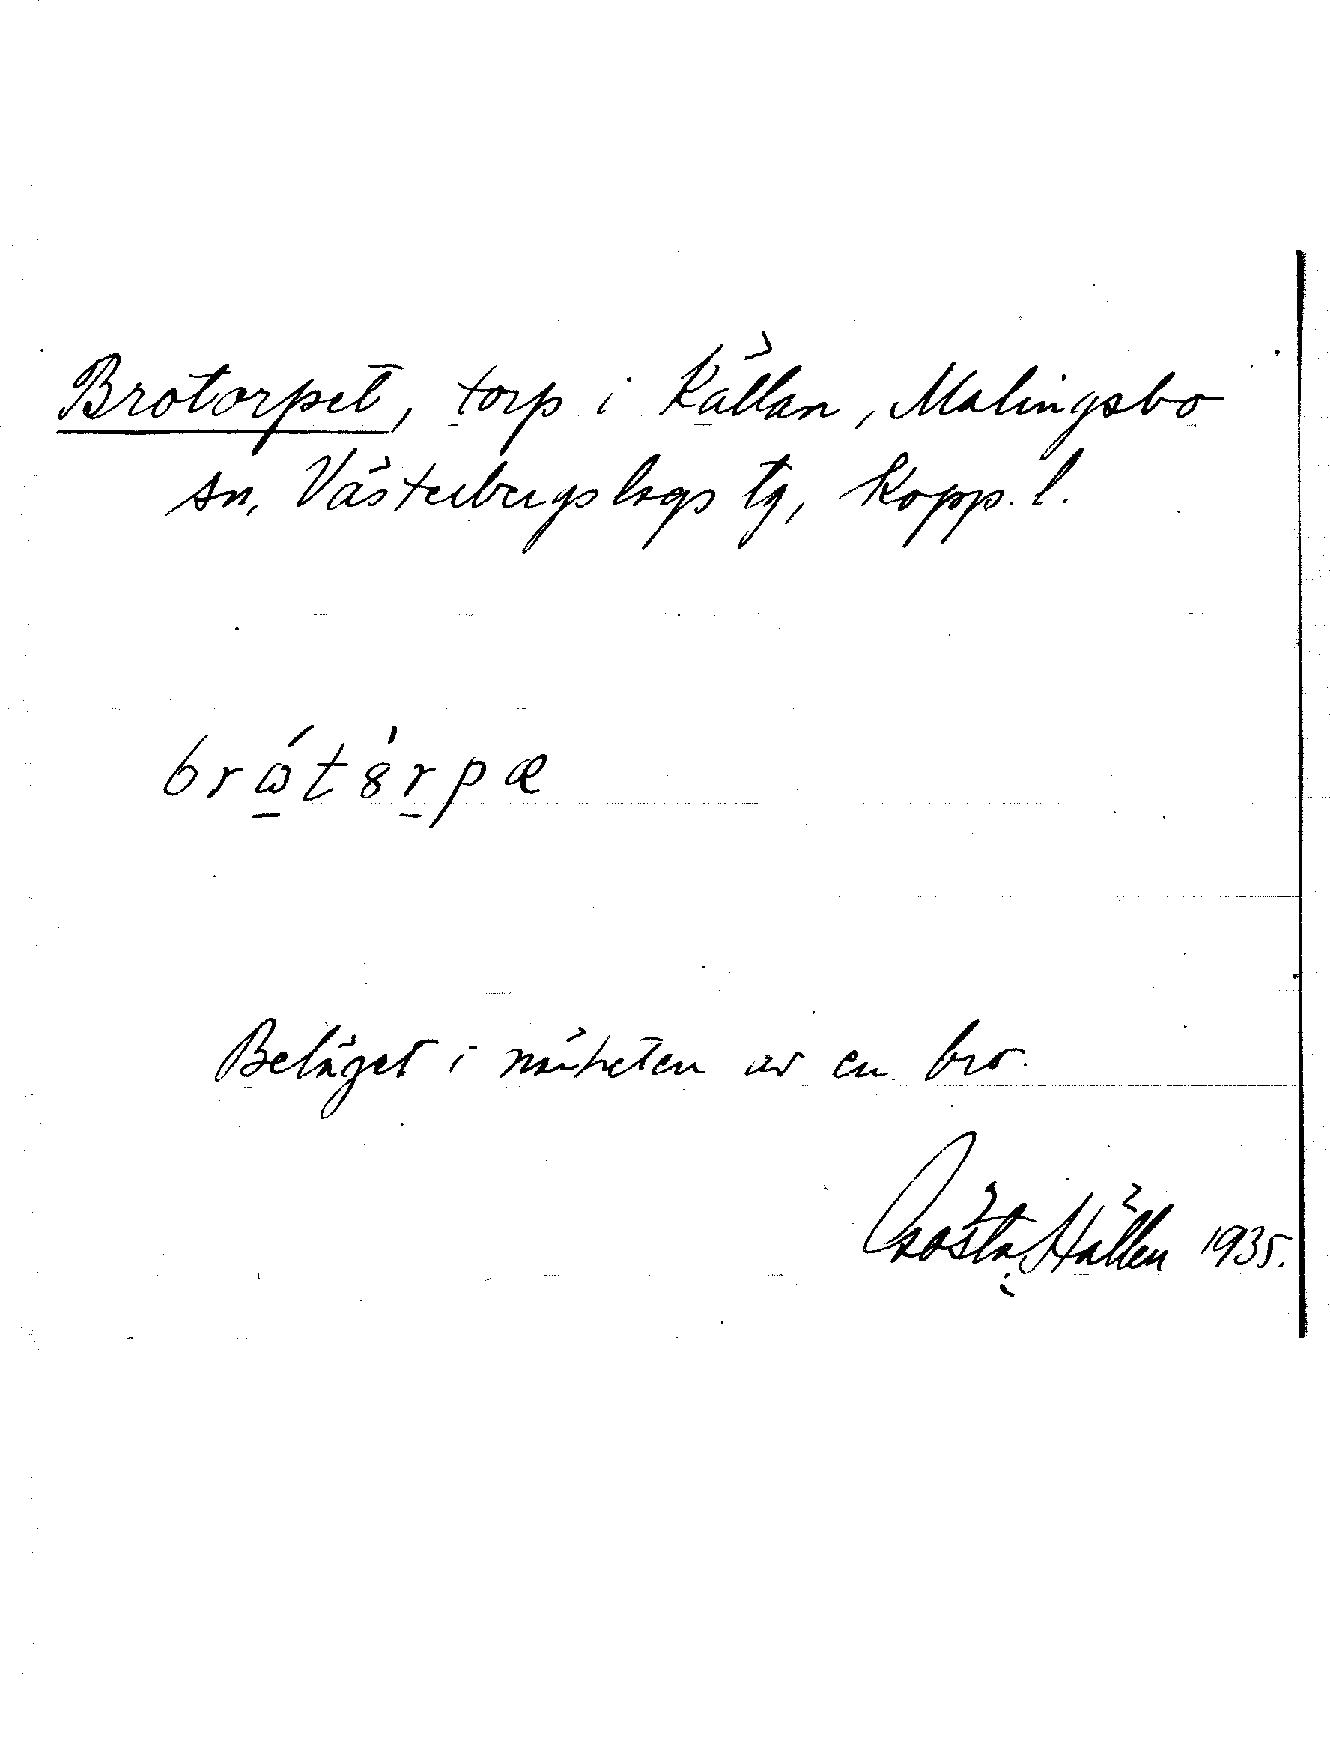 Brotorpet, torp i Källan, Malingsbo
sn, Västerbergslags tg, Kopp. l.
brώtȣ̀rpæ
Beläget i närheten av en bro.
Gösta Hällen 1935.